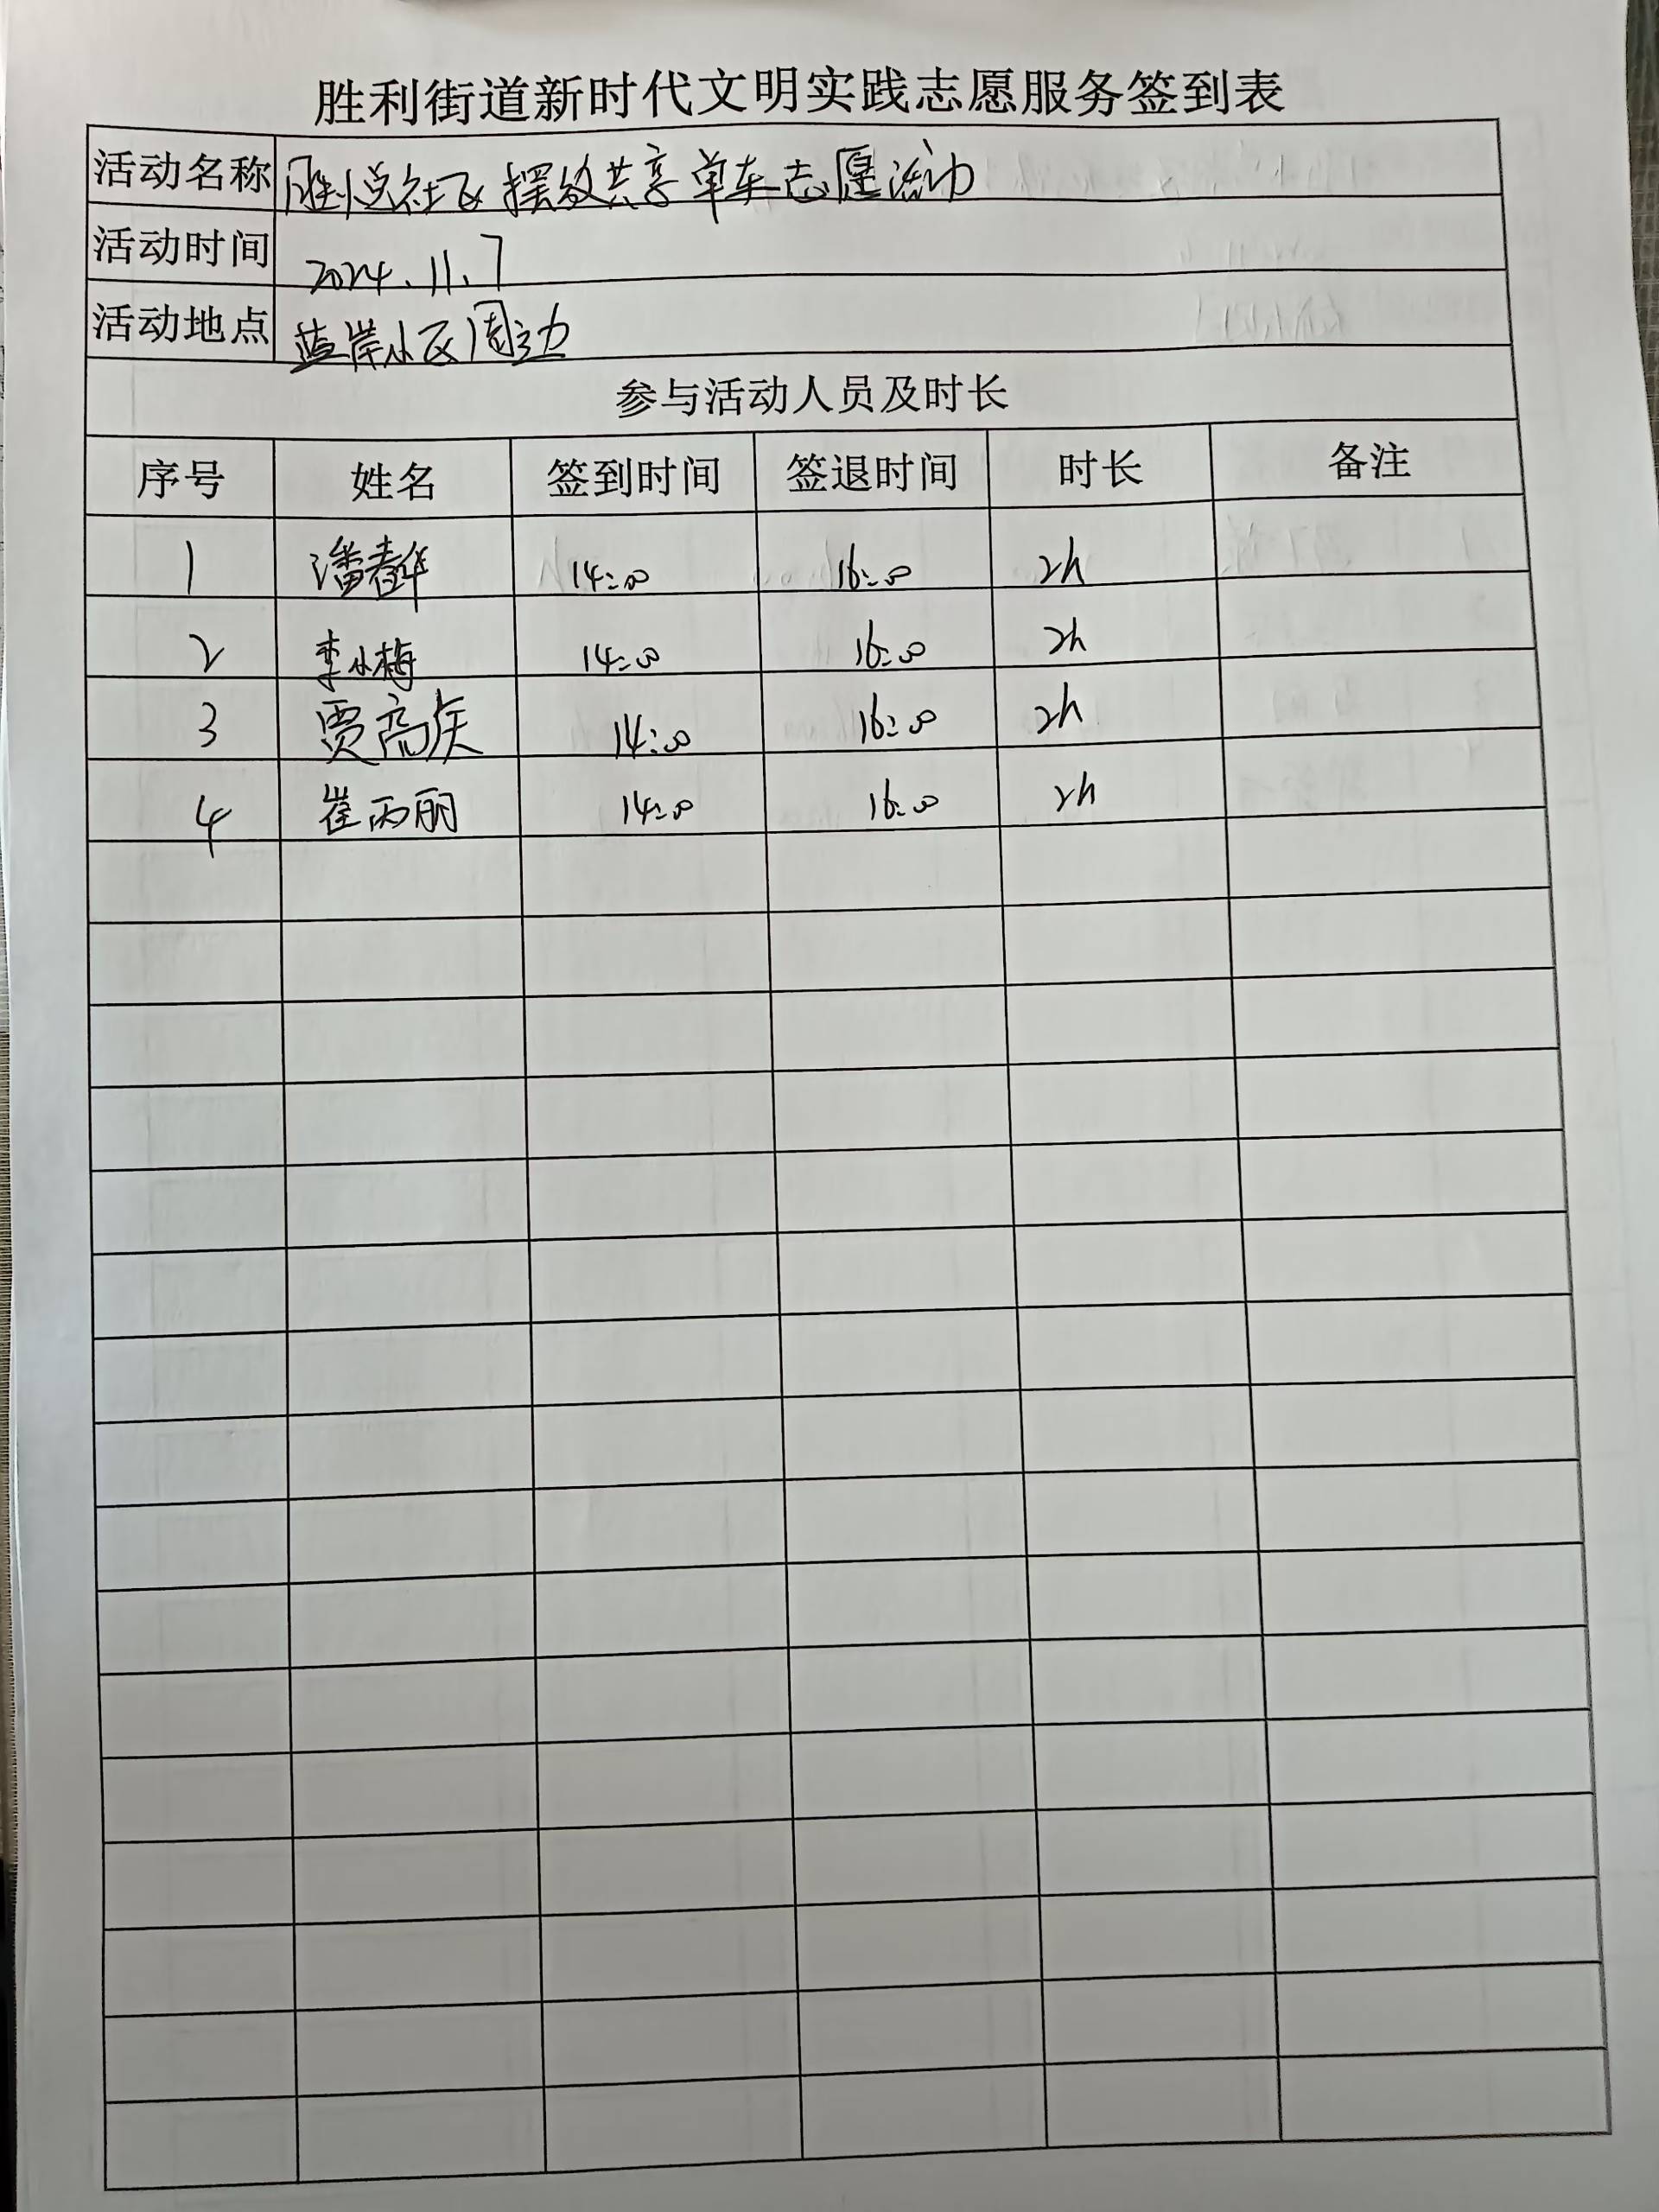 胜利街道新时代文明实践志愿服务签到表
活动名称 胜小总社区摆放共享单车志愿活动
活动时间 2024.11.7
活动地点 蓝岸小区周边
参与活动人员及时长
序号 姓名 签到时间 签退时间 时长 备注
1 潘春华 14:00 16:00 2h
2 李小梅 14:00 16:00 2h
3 贾高 14:00 16:00 2h
4 崔丙丽 14:00 16:00 2h